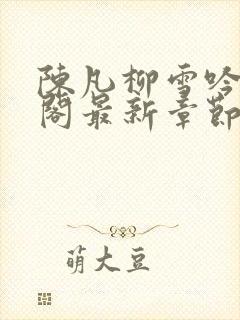 陳凡柳雪吟
閣最新章節
萌大豆